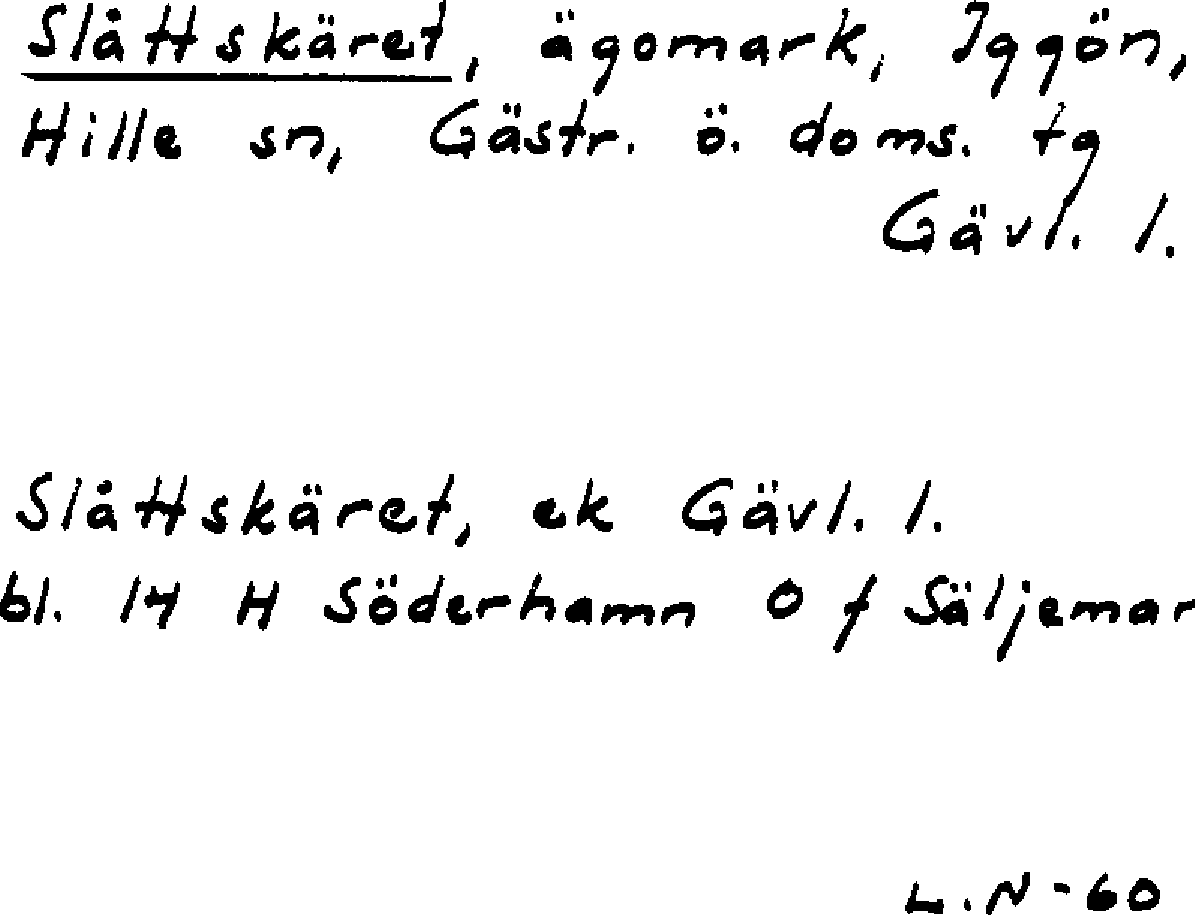 Slåttskäret, ägomark, Iggön,
Hille sn, Gästr. ö. doms. tg
Gävl. l.
Slåttskäret, ek Gävl. l.
bl. 14 H Söderhamn O f Säljemar
L.N-60